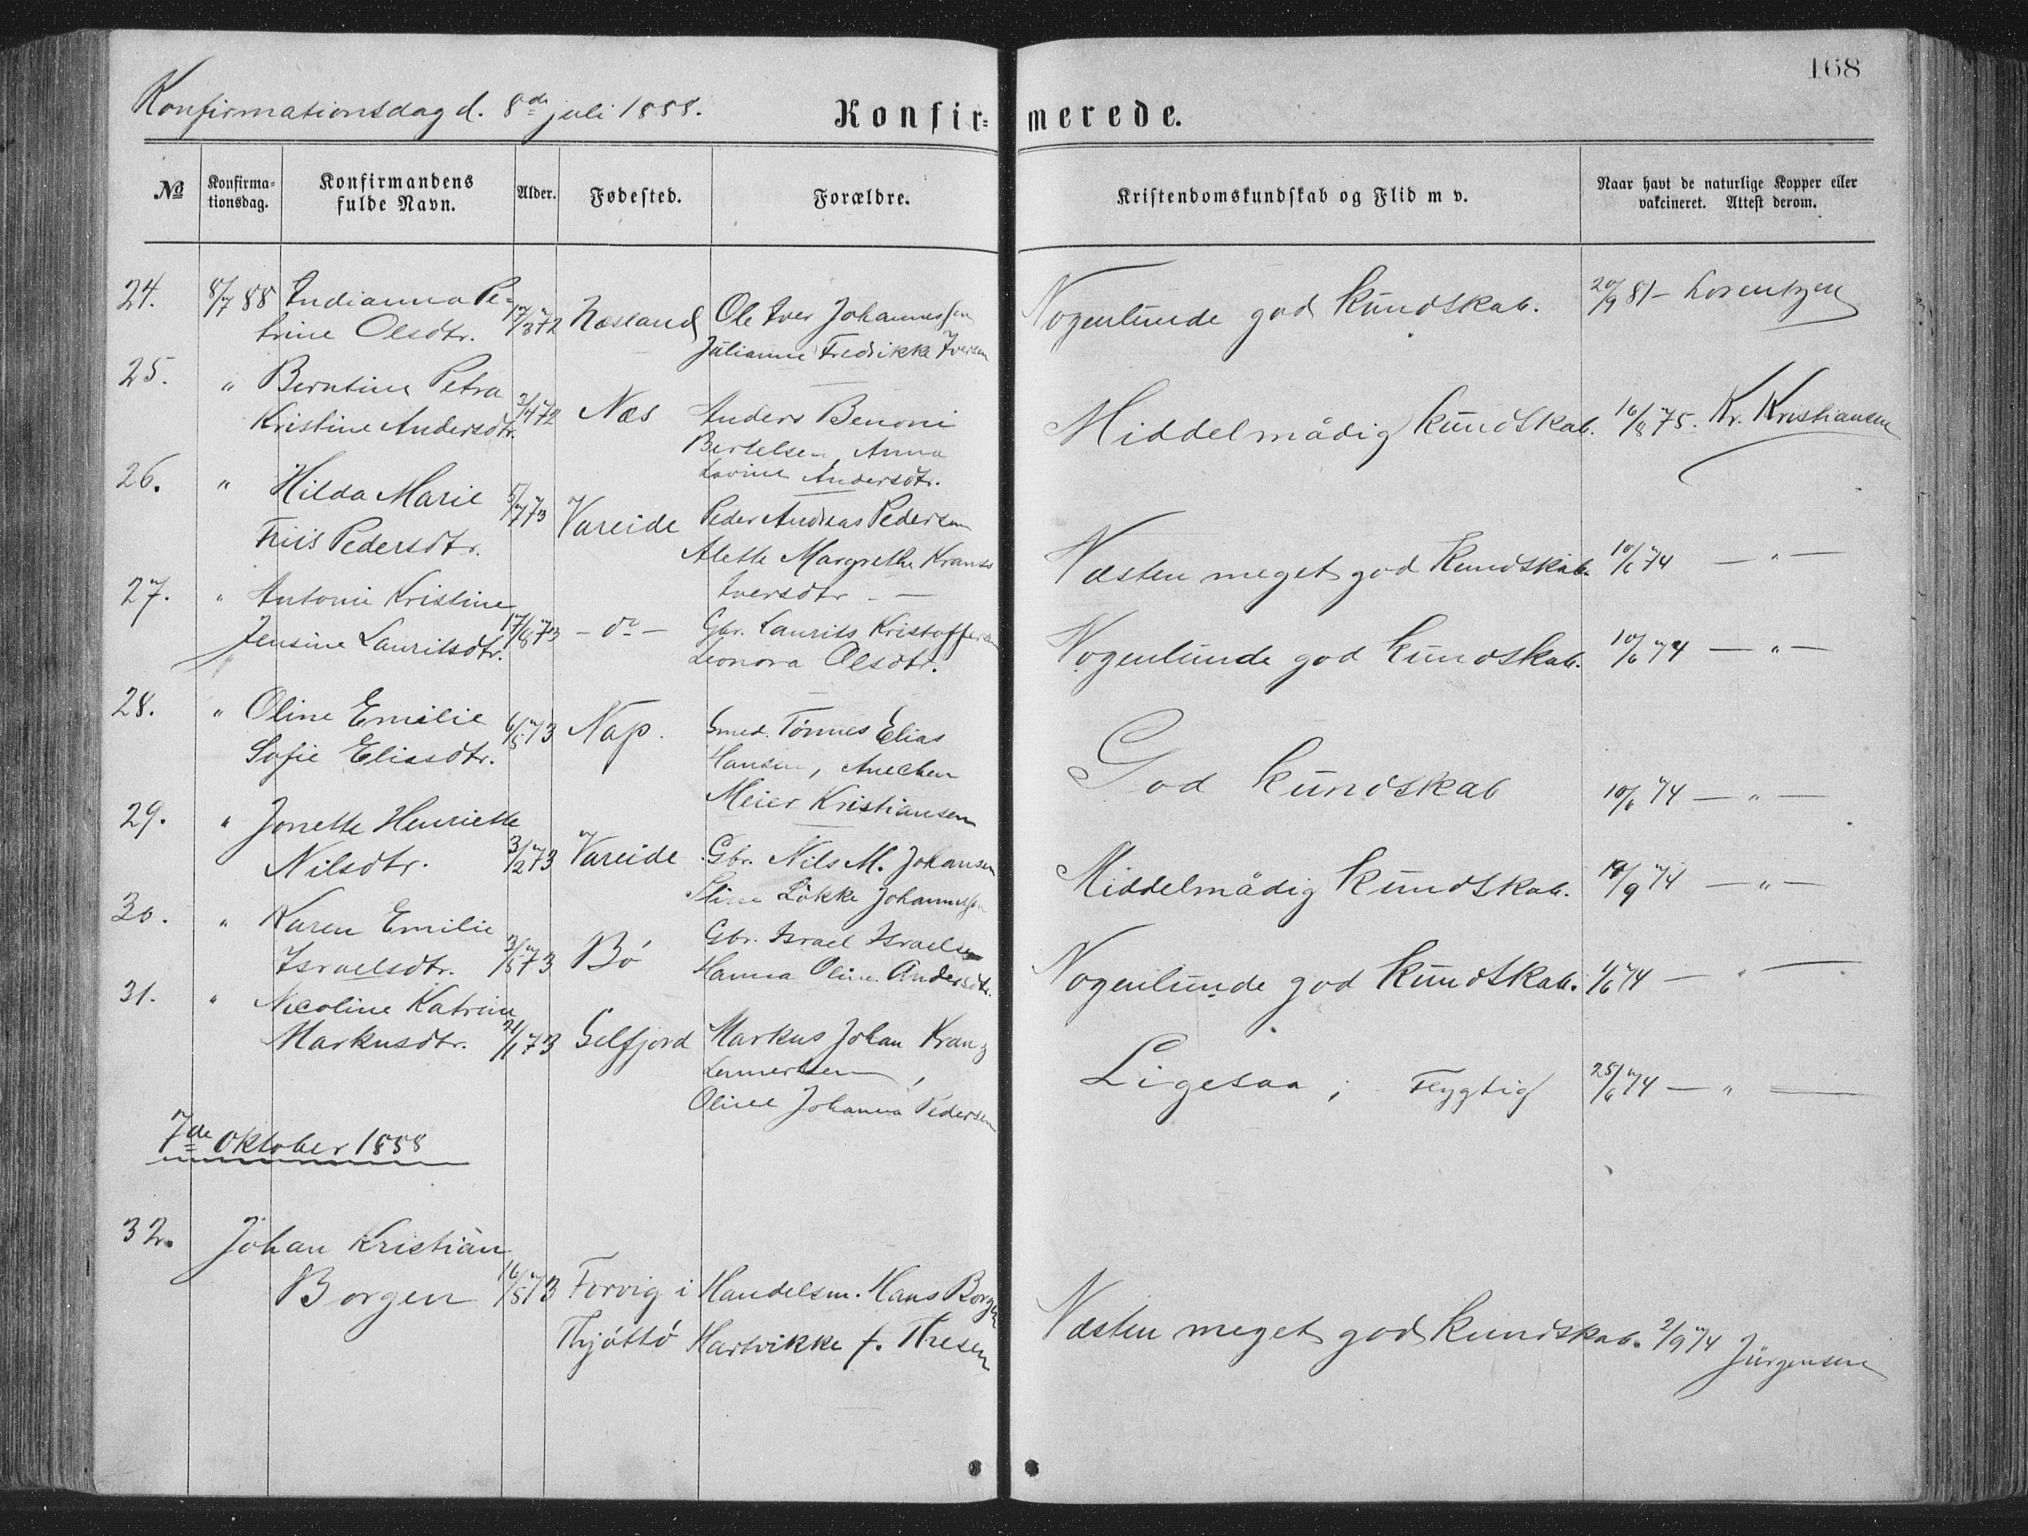 168
Konfirmationsdag d. 8de juli 1888.
Konfir=
merede.
No
Konfirma-
tionsdag.
Konfirmandens
fulde Navn.
Alder.
Fødested.
Forældre.
Kristendomskundskab og Flid m v.
Naar havt de naturlige Kopper eller
vakcineret. Attest derom.
24. 8/7 88 Indianna Pe-
trine Olsdtr. 17/3 72 Næsland Ole Iver Johannessen
Julianne Fredrikke Iversen
Nogenlunde god kundskab. 20/9 81 – Lorentzen
25. " Berntine Petra
Kristine Andersdtr. 3/4 72 Næs Anders Benoni
Bertelsen, Anna
Lovine Andersdtr.
Middelmådig kundskab. 16/8 75. Kr. Kristiansen
26. " Hilda Marie
Friis Pedersdtr. 5/7 73 Vareide Peder Andreas Pedersen
Alette Margrethe Kranss
Iversdtr. –
Næsten meget god kundskab. 10/6 74 – " –
27. " Antonie Kristine
Jensine Lauritsdtr. 17/8 73 – do – Gbr. Laurits Kristoffersen
Leonora Olsdtr.
Nogenlunde god kundskab. 10/6 74 – " –
28. " Oline Emilie
Sofie Eliasdtr. 6/5 73 Nap. Smed. Tønnes Elias
Hansen, Anechen
Meier Kristiansen
God kundskab 10/6 74 – " –
29. " Jonette Henriette
Nilsdtr. 3/12 73 Vareide Gbr. Nils M. Johansen
Stine Løkke Johannessen
Middelmådig kundskab. 10/9 74 – " –
30. " Karen Emilie
Israelsdtr. 3/5 73 Bø Gbr. Israel Israelsen
Hanna Oline Andersdtr.
Nogenlunde god kundskab. 1/6 74 – " –
31. " Nicoline Katrine
Markusdtr. 21/1 73 Selfjord Markus Johan Kranz
Lennertsen,
Oline Johanna Pedersen
Ligesaa; Flygtig 25/6 74 – " –
7de oktober 1888
32. Johan Kristian
Borgen 16/5 73 Forvig i Handelsm. Hans Borgen
Thjøttø Hartvikke f. Thresen
Næsten meget god kundskab. 2/9 74 Jürgensen